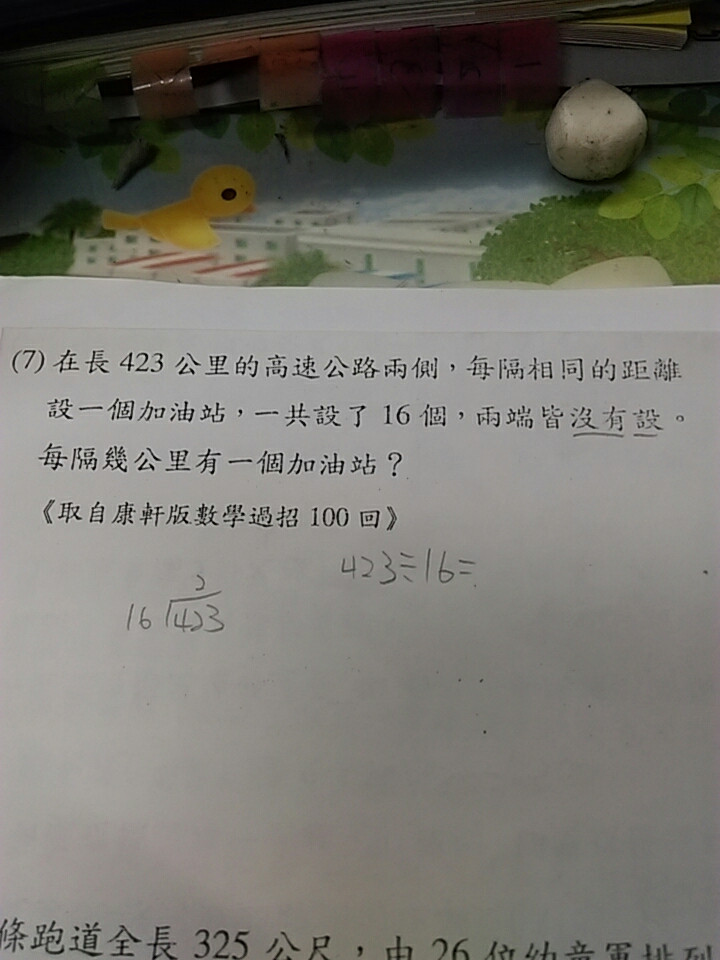 (7) 在長 423 公里的高速公路兩側，每隔相同的距離
設一個加油站，一共設了 16 個，兩端皆沒有設。
每隔幾公里有一個加油站？
《取自康軒版數學過招 100 回》
423÷16=
2
16 423
條跑道全長 325 公尺，由 26 位幼童軍排列